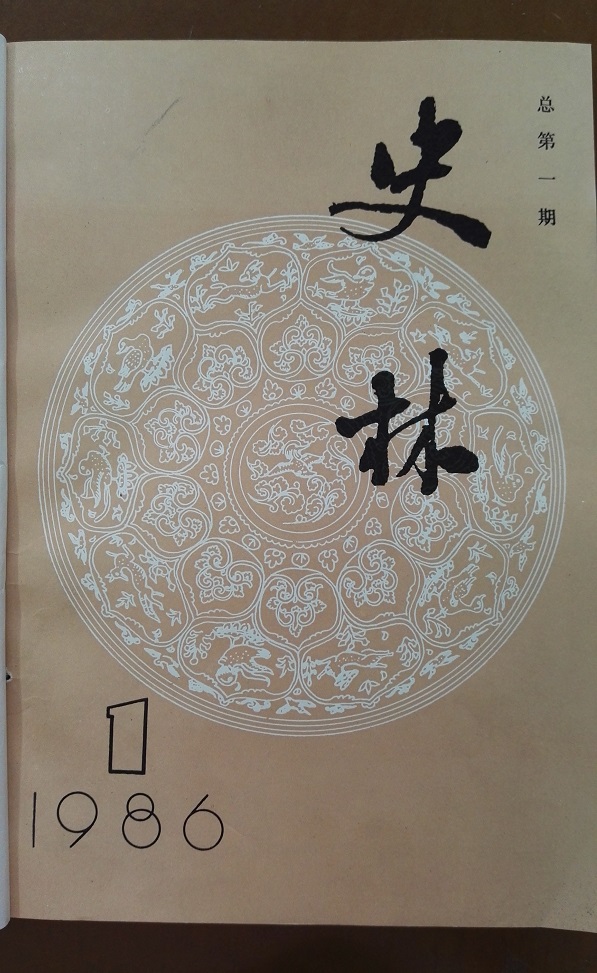 总第一期
史林
1
1986